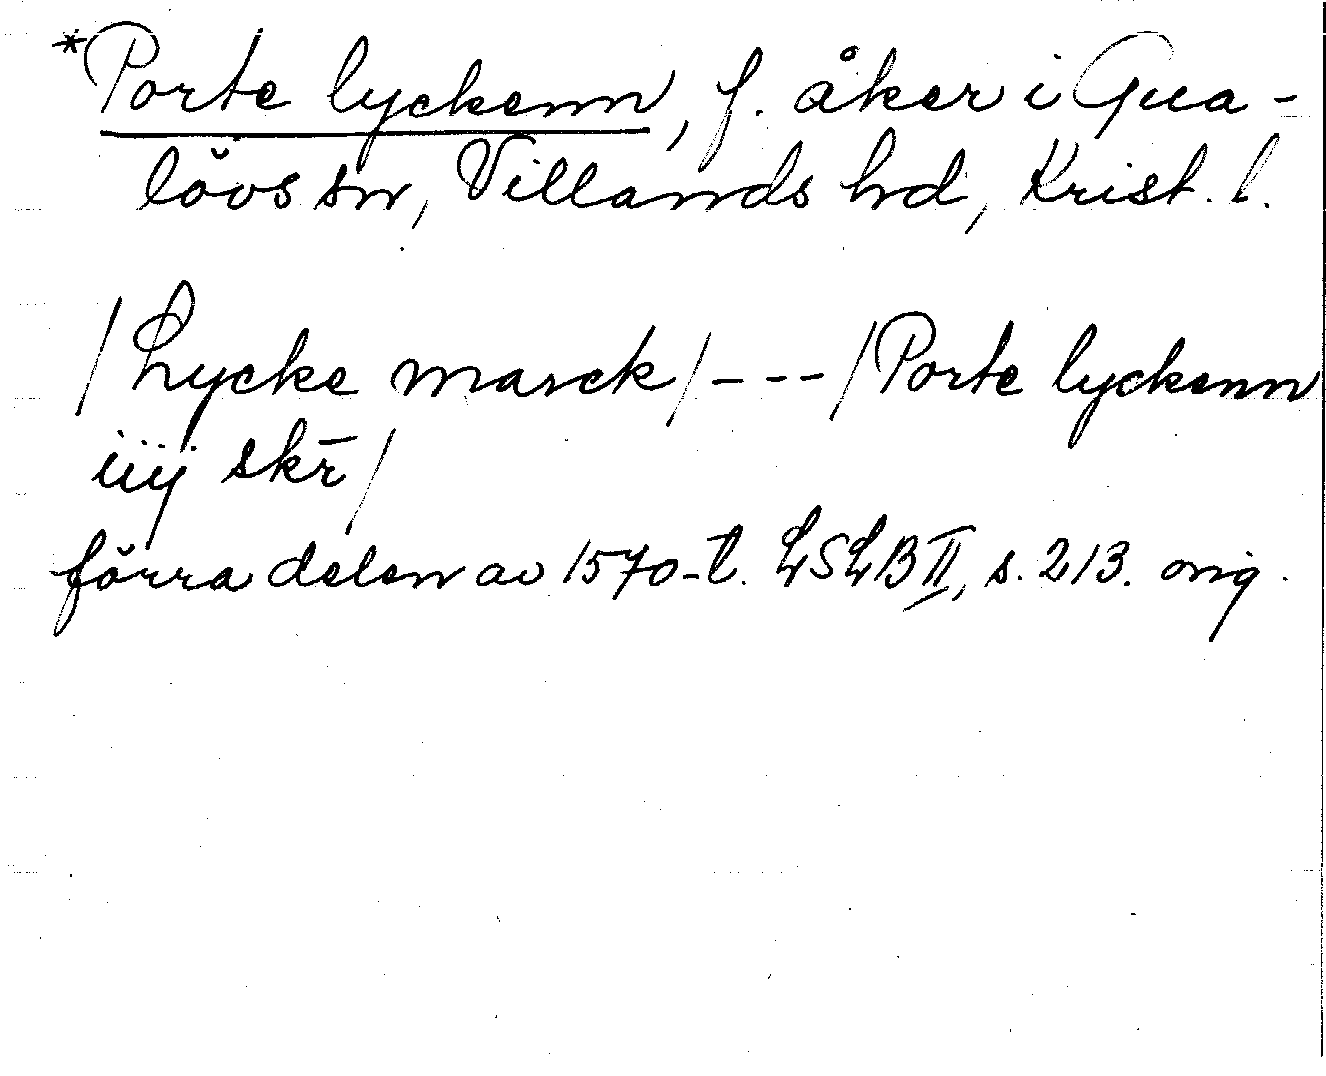 *Porte lyckenn, f. åker i Gua-
lövs sn, Villands hd, Krist. l.
/Lycke marck/---/Porte lyckenn
iiij skr̄/
förra delen av 1570-t. LSLB II, s. 213. orig.